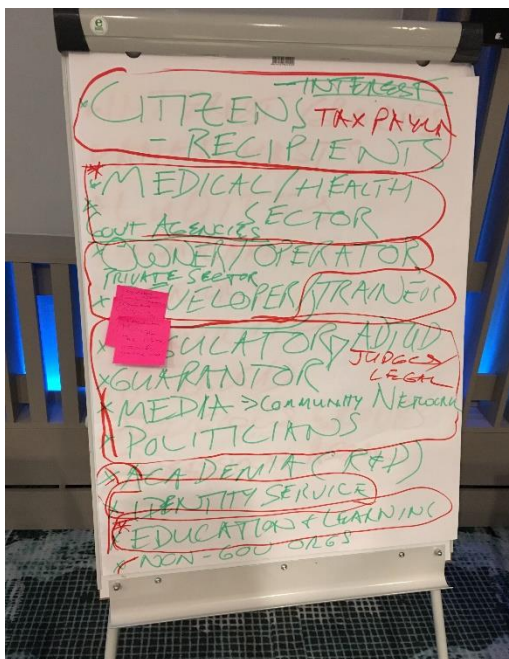 - INTEREST
CITIZENS TAX PAYER
- RECIPIENTS
* MEDICAL/HEALTH
* SECTOR
GOVT AGENCIES
* OWNER/OPERATOR
PRIVATE SECTOR
* VELOPER/TRAINER
GULATOR> ADJUD
JUDGES
* GUARANTOR LEGAL
* MEDIA > COMMUNITY NETWORK
* POLITICIANS
* ACADEMIA (R&D)
* IDENTITY SERVICE
* EDUCATION & LEARNING
* NON-GOV ORGS